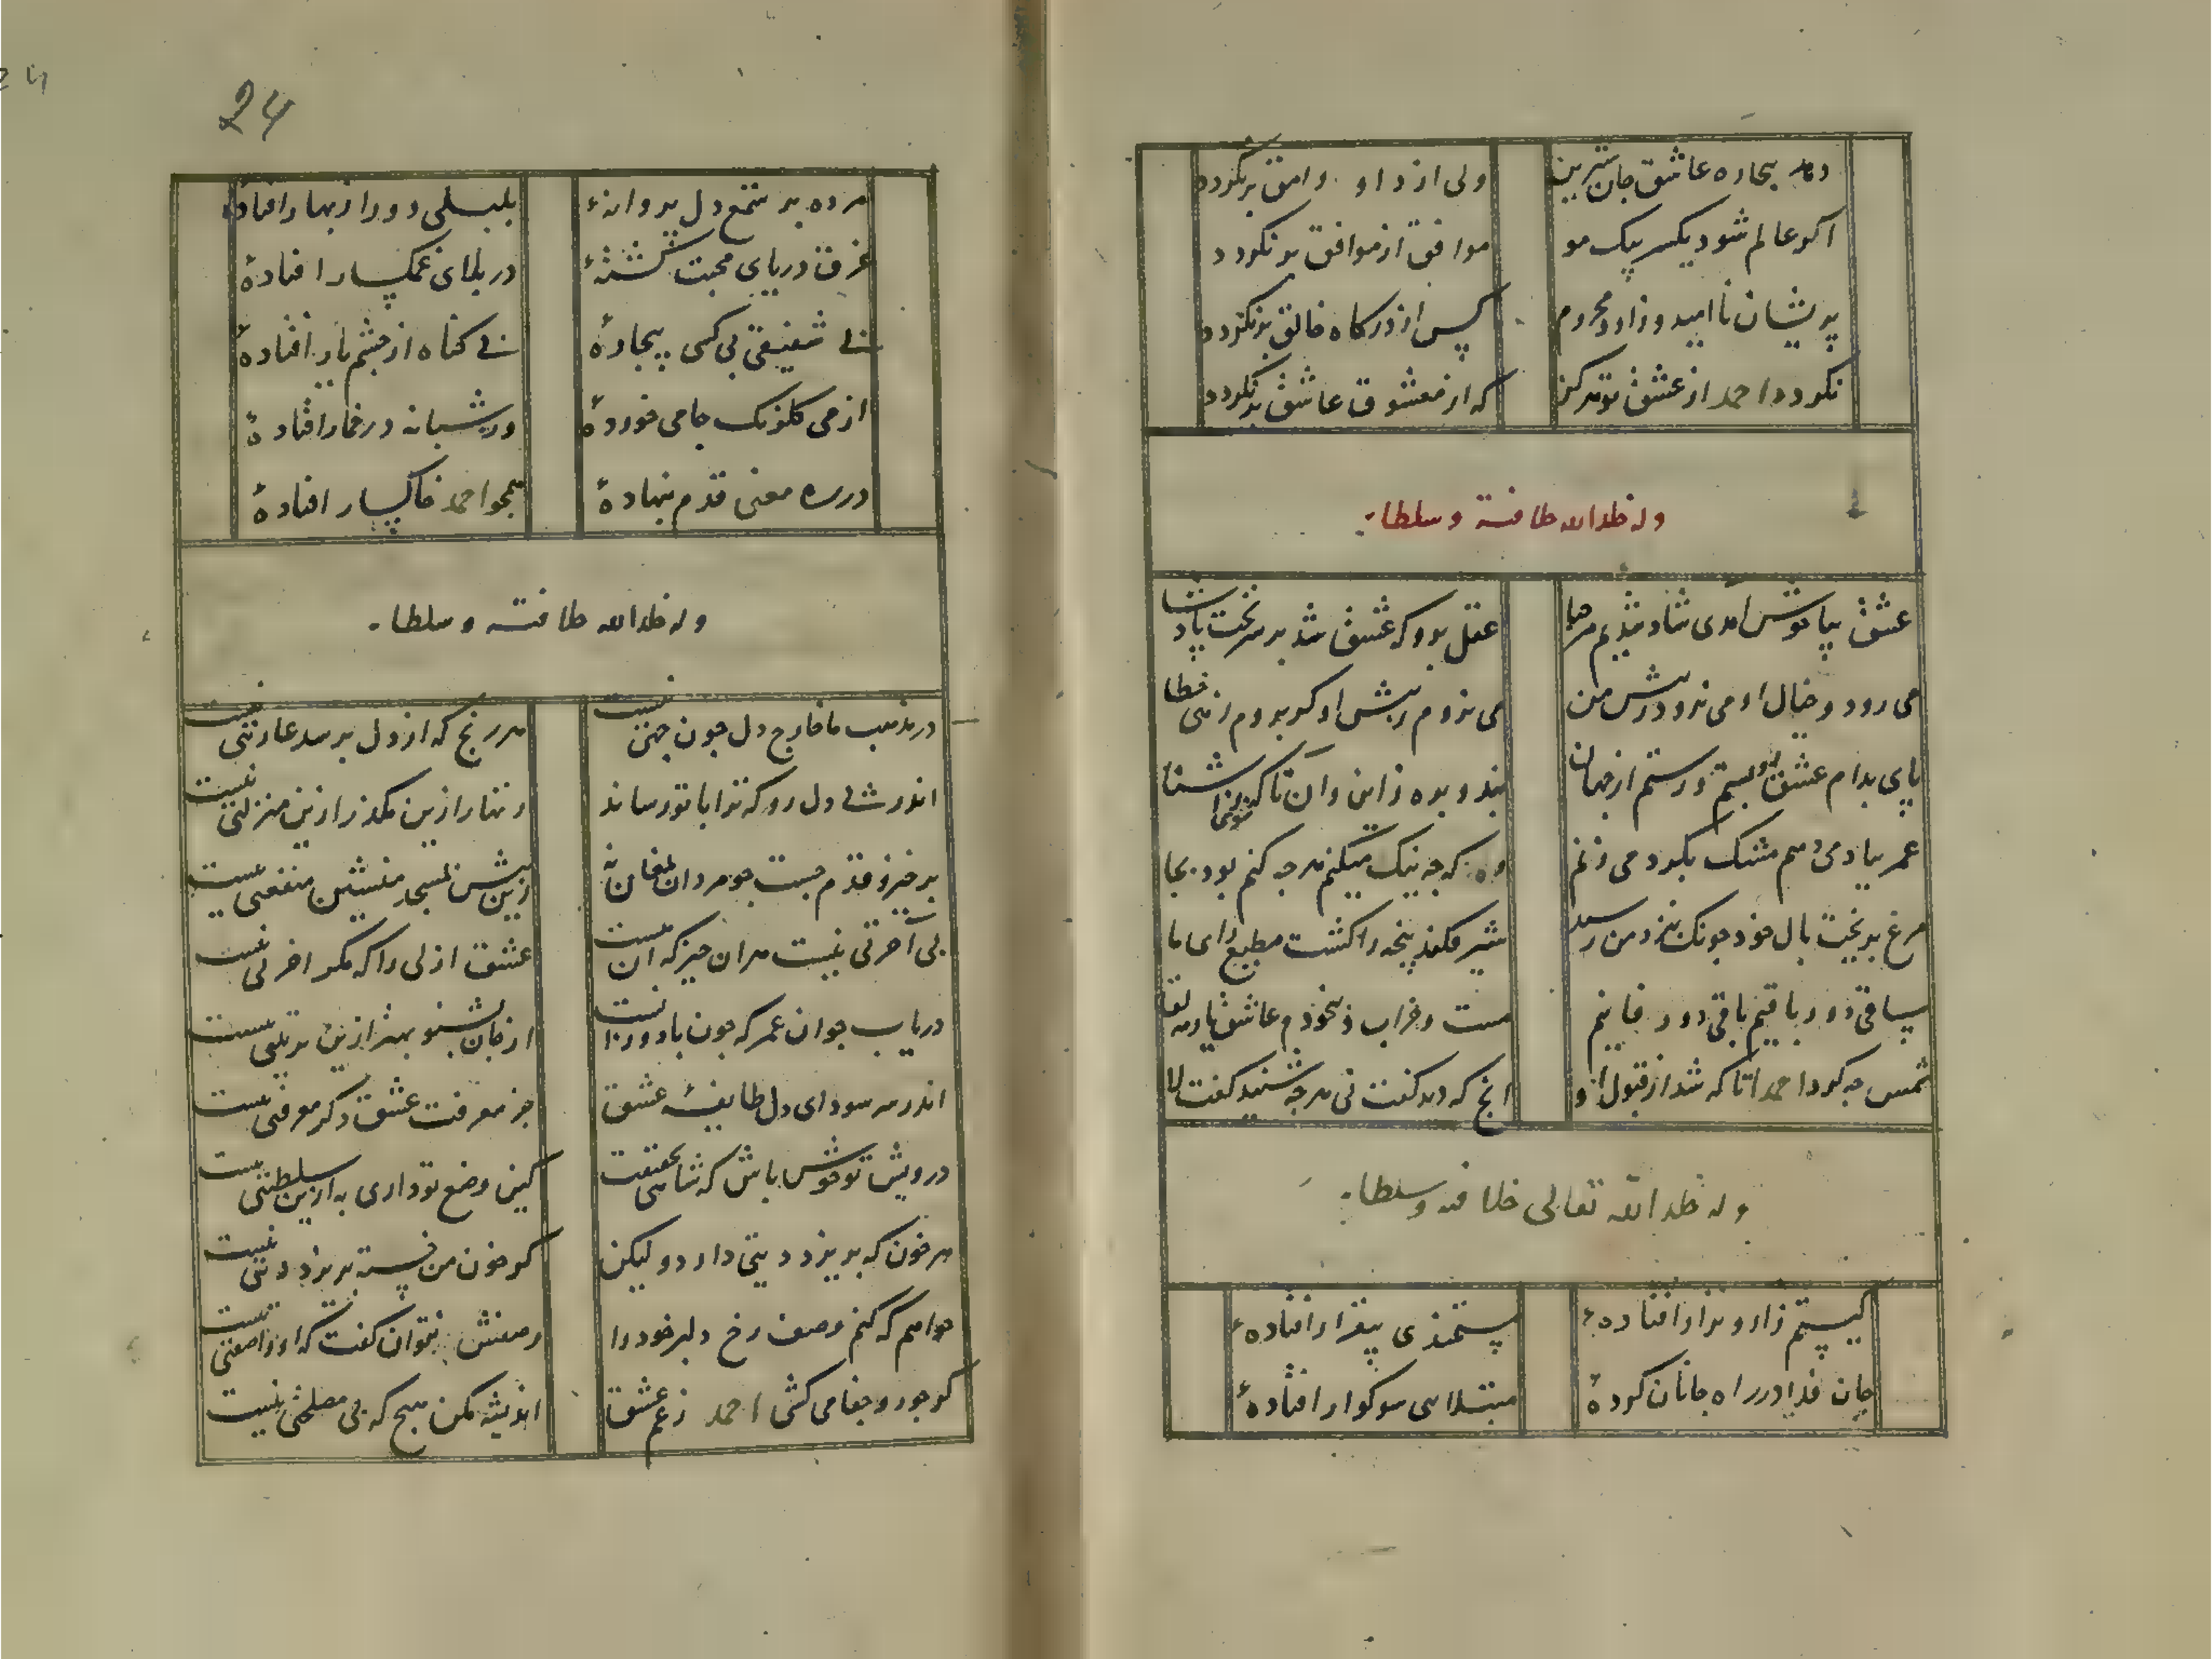 دهد بیچاره عاشق جان شیرین
ولی از داو وامق برنگردد
اگر عالم شود یکسر یک مو
موافق از موافق برنگردد
پریشان ناامید و زار و محروم
کس از درگاه خالق برنگردد
نگردد احمد از عشق تو هرگز
که از معشوق عاشق برنگردد
وله خلد الله خلافته و سلطانه
عشق بیا خوش آمدی شاد شدیم مرحبا
عقل برو که عشق شد بر سر تخت پادشا
می رود و خیال او می نرود ز پیش من
می نروم ز پیش او گر بروم زهی خطا
پای بدام عشق تو بستم و رستم از جهان
عمر بباد می دهم مشک بگرد می زنم
وه که چه نیک میکنم هر چه کنم بود بجا
مرغ بریخت بال خود چونک بنزد من رسید
شیر فکند پنجه را گشت مطیع رای ما
ساقی دور باقیم باقی دور فانیم
مست و خراب و بیخودم عاشق یار مه لقا
شمس چه کرد احمدا تا که شد از قبول او
انچ که دید گفت نی هر چه شنید گفت لا
وله خلد الله تعالی خلافته و سلطانه
کیستم زار و نزار افتادهٔ
مستمندی بیقرار افتادهٔ
جان فدا در راه جانان کردهٔ
مبتلاسی سوکوار افتادهٔ
24
مرده بر شمع دل پروانهٔ
بلبلی دور از بهار افتادهٔ
غرق دریای محبت گشتهٔ
در بلای غمگسار افتادهٔ
بی شفیقی بی کسی بیچارهٔ
بی گناه از چشم یار افتادهٔ
از می گلرنگ جامی خوردهٔ
ورشبانه در خمار افتادهٔ
در ره معنی قدم بنهادهٔ
همچو احمد خاکسار افتادهٔ
وله خلد الله خلافته و سلطانه
در مذهب ما خارج دل چون چمنی نیست
هر رنج که از دل برسد عار تنی نیست
اندر پی دل رو که ترا با تو رساند
زنهار ازین مگذر ازین منزلتی نیست
برخیز و قدم جست چو مردان بمغان نه
زین پیش بمسجد منشین منفعتی نیست
بی آخرتی نیست هر ان چیز که ان هست
عشق ازلی را که مگر اخرتی نیست
دریاب جوان عمر که چون باد وزانست
از جان بشنو بهتر ازین تربیتی نیست
اندر سر سودای دل طایفهٔ عشق
جز معرفت عشق دگر معرفتی نیست
درویش تو خوش باش که شاهی بحقیقت
کین وضع تو داری به ازین سلطنتی نیست
هر خون که بریزد دیتی دارد و لیکن
گر خون من خسته بریزد دیتی نیست
خواهم که کنم وصف رخ دلبر خود را
وصفش نتوان گفت که او را صفتی نیست
گر جور و جفا می کشی احمد ز غم عشق
اندیشه مکن هیچ که بی مصلحتی نیست